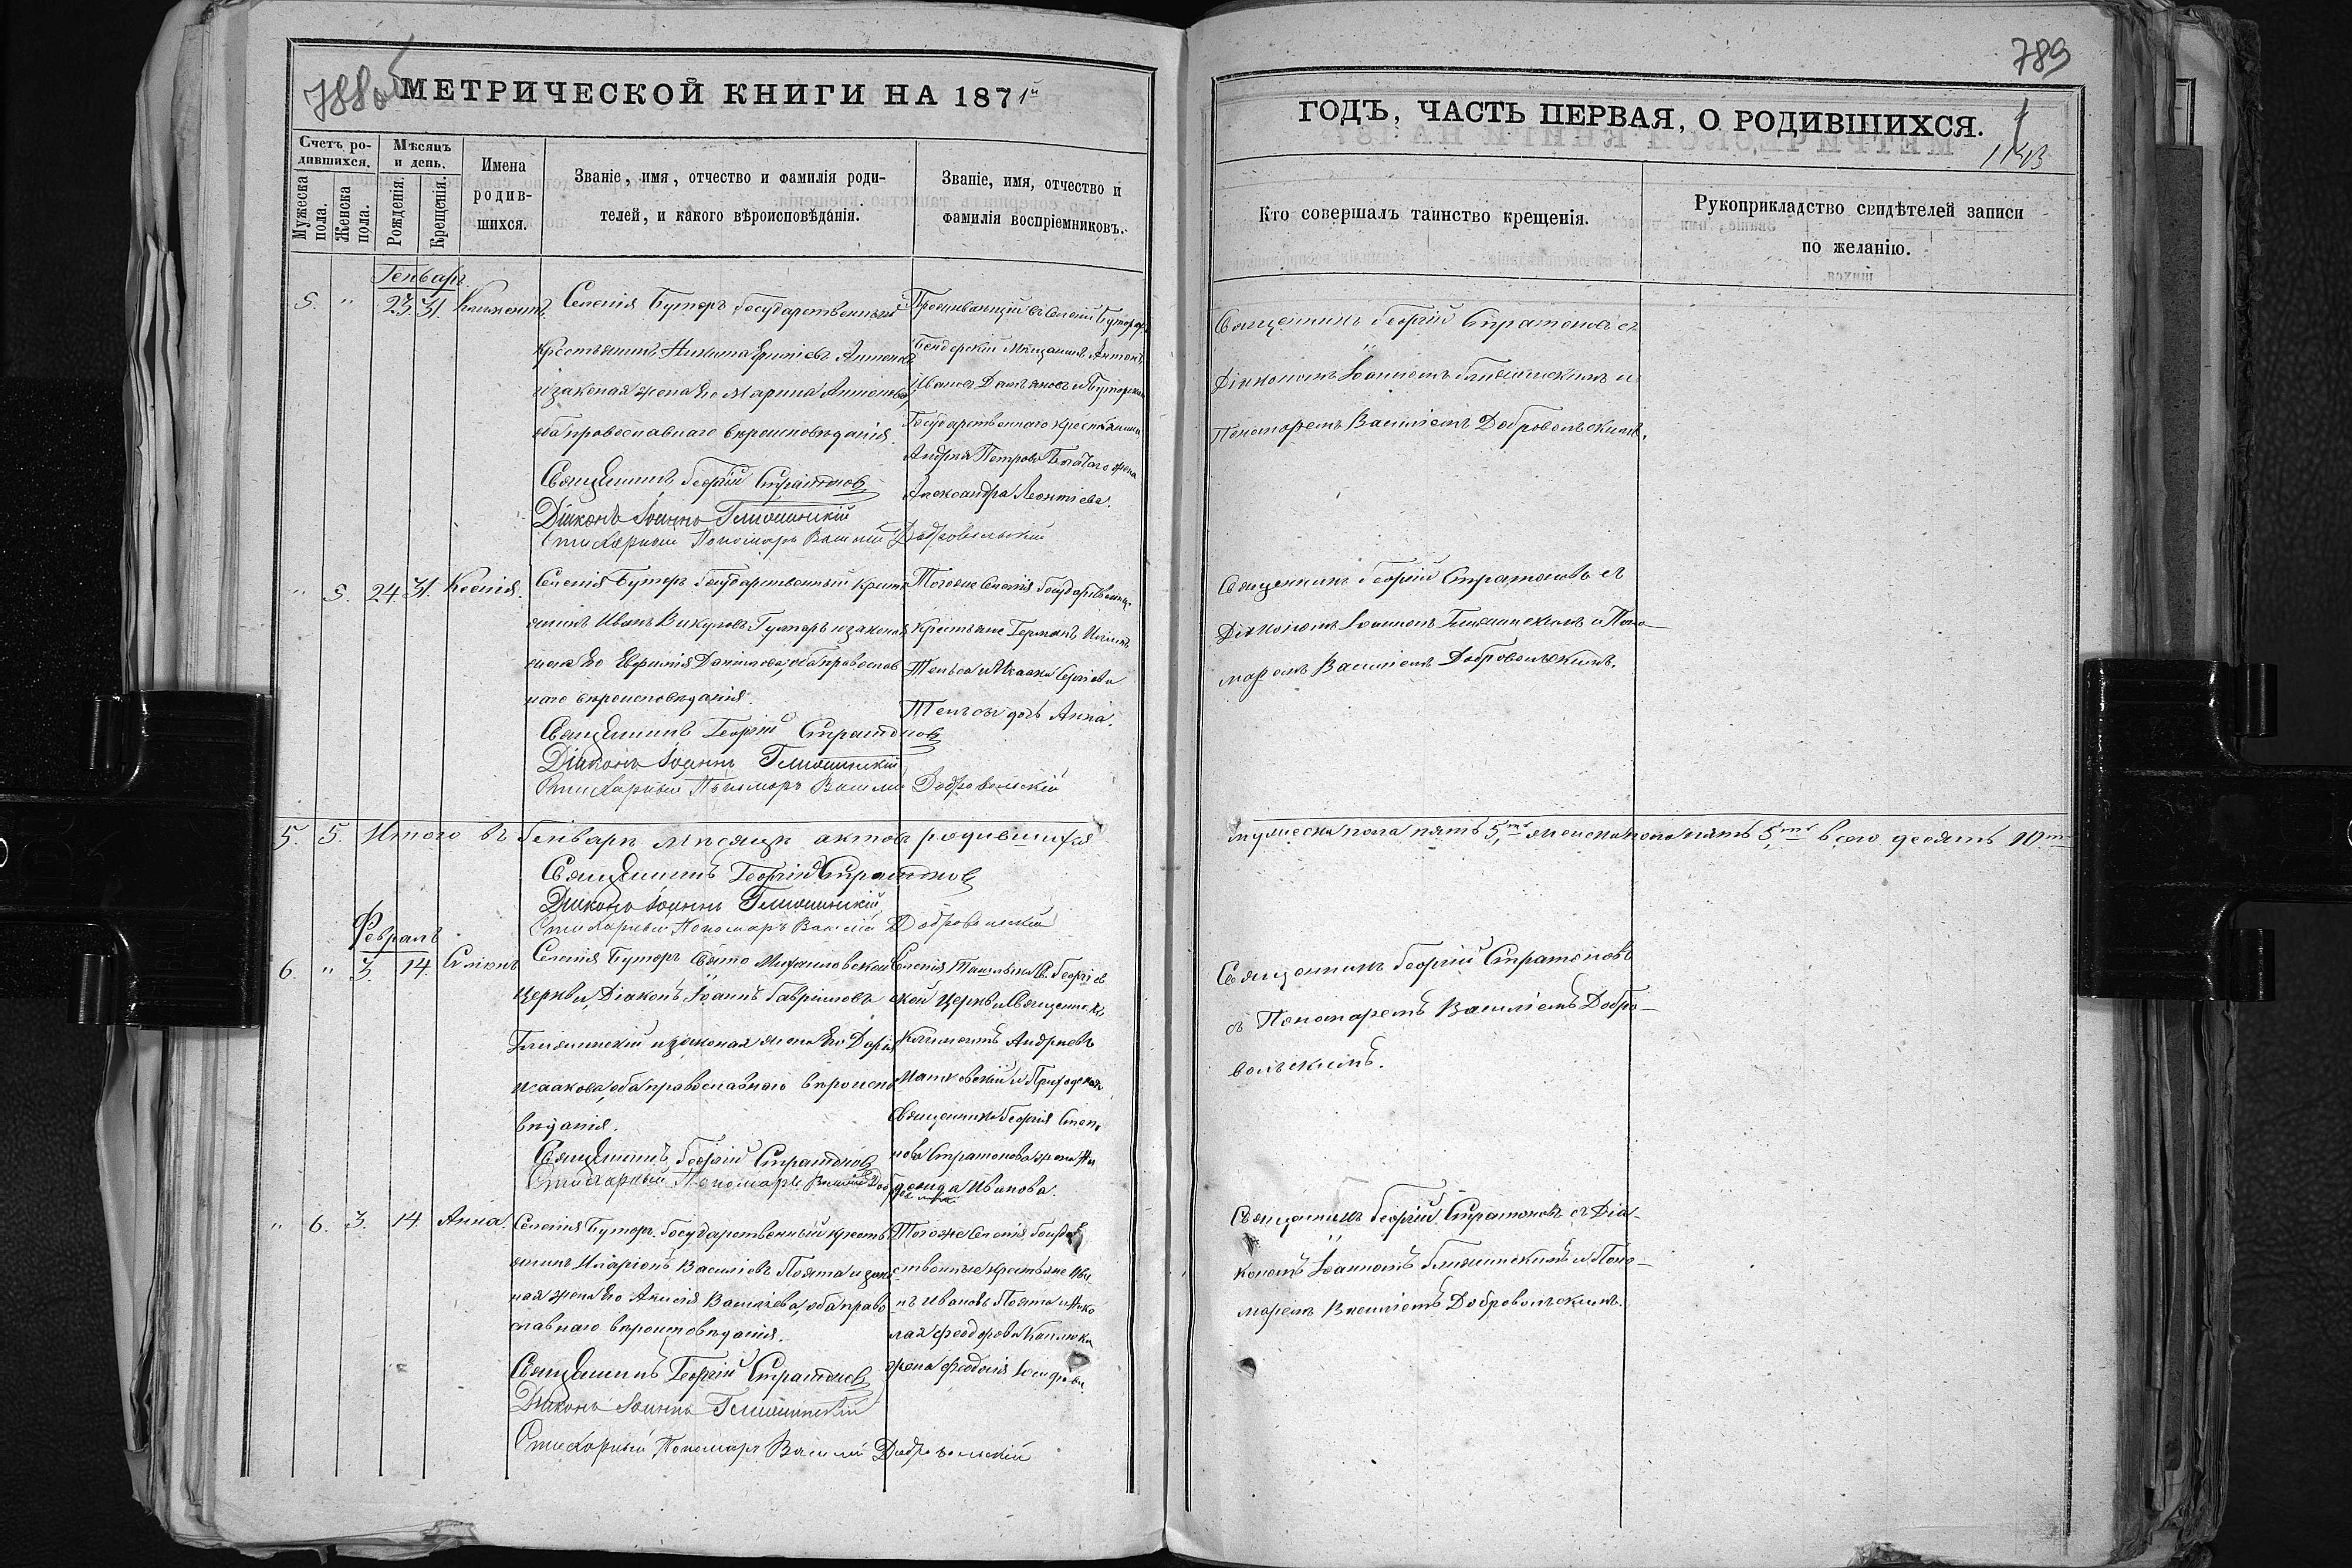 788об
МЕТРИЧЕСКОЙ КНИГИ НА 1871й
Счетъ ро-
дившихся.
Мужеска пола.
Женска пола.
Мѣсяцъ
и день.
Рожденія.
Крещенія.
Имена
родив-
шихся.
Званіе, имя, отчество и фамилія роди-
телей, и какого вѣроисповѣданія.
Званіе, имя, отчество и
фамилія воспріемниковъ.
Генварь
5. " 23. 31. Климентъ
Селенія Буторъ Государственный
крестьянинъ Никита
и законая жена Его Марина Антонова,
оба православнаго вѣроисповѣданія.
Священникъ Георгій Стратоновъ
Діяконъ Іоаннъ
Стихарный Пономарь Василій Добровольскій
Проживающій въ Селеніи Буторахъ
Бендерскій Мѣщанинъ Антонъ
Ивановъ Дамяновъ и Буторскаго
Государственнаго крестьянина
Андрея Петрова жена
Александра Леонтіева.
" 5. 24. 31. Ксенія.
Селенія Буторъ Государственный крестья
янинъ Иванъ Викуловъ и законая
жена Его Евфимія Данилова, оба православ
наго вѣроисповѣданія.
Священникъ Георгій Стратоновъ
Діяконъ Іоаннъ
Стихарный Пономарь Василій Добровольскій
Тогоже Селенія Государственные
Крестьяне Германъ
и Исаака Сергіева
дочь Анна.
5. 5. Итого въ Генварѣ мѣсяцѣ актовъ родившихся
Священникъ Георгій Стратоновъ
Діяконъ Іоаннъ
Стихарный Пономарь Василій Добровольскій
Февраль
6. " 3. 14. Симеонъ
Селенія Буторъ Свято Михаиловской
Церкви, Діаконъ Іоаннъ Гавріиловъ
и законая жена Его Дарія
Исаакова, оба православнаго вѣроиспо
вѣданія.
Священникъ Георгій Стратоновъ
Стихарный Пономарь Василій
Селенія Ташлыка Св. Георгіев
ской Церкви Священникъ
Климентъ Андреевъ
и Приходскаго
Священника Георгія
Стратонова жена
Иванова.
" 6. 3. 14. Анна.
Селенія Буторъ Государственный кресть
янинъ Иларіонъ Василіовъ Поята и зако
ная жена Его Анисія Василіева, оба право
славнаго вѣроисповѣданія.
Священникъ Георгій Стратоновъ
Діяконъ Іоаннъ
Стихарный Пономарь Василій Добровольскій
Тогоже Селенія Государ
ственные крестьяне Ива
нъ Ивановъ Поята и Нико
лая Феодорова
жена Феодосія
789
ГОДЪ, ЧАСТЬ ПЕРВАЯ, О РОДИВШИХСЯ.
Кто совершалъ таинство крещенія.
Рукоприкладство свидѣтелей записи
по желанію.
Священникъ Георгій Стратоновъ съ
Діякономъ Іоанномъ и
Пономаремъ Василіемъ Добровольскимъ.
Священникъ Георгій Стратоновъ съ
Діякономъ Іоанномъ и Поно-
маремъ Василіемъ Добровольскимъ.
мужеска пола пять 5ть женска пола пять 5ть всего десять 10ть
Священникъ Георгій Стратоновъ
съ Пономаремъ Василіемъ Добро-
вольскимъ.
Священникъ Георгій Стратоновъ съ Діа-
кономъ Іоанномъ и Поно-
маремъ Василіемъ Добровольскимъ.